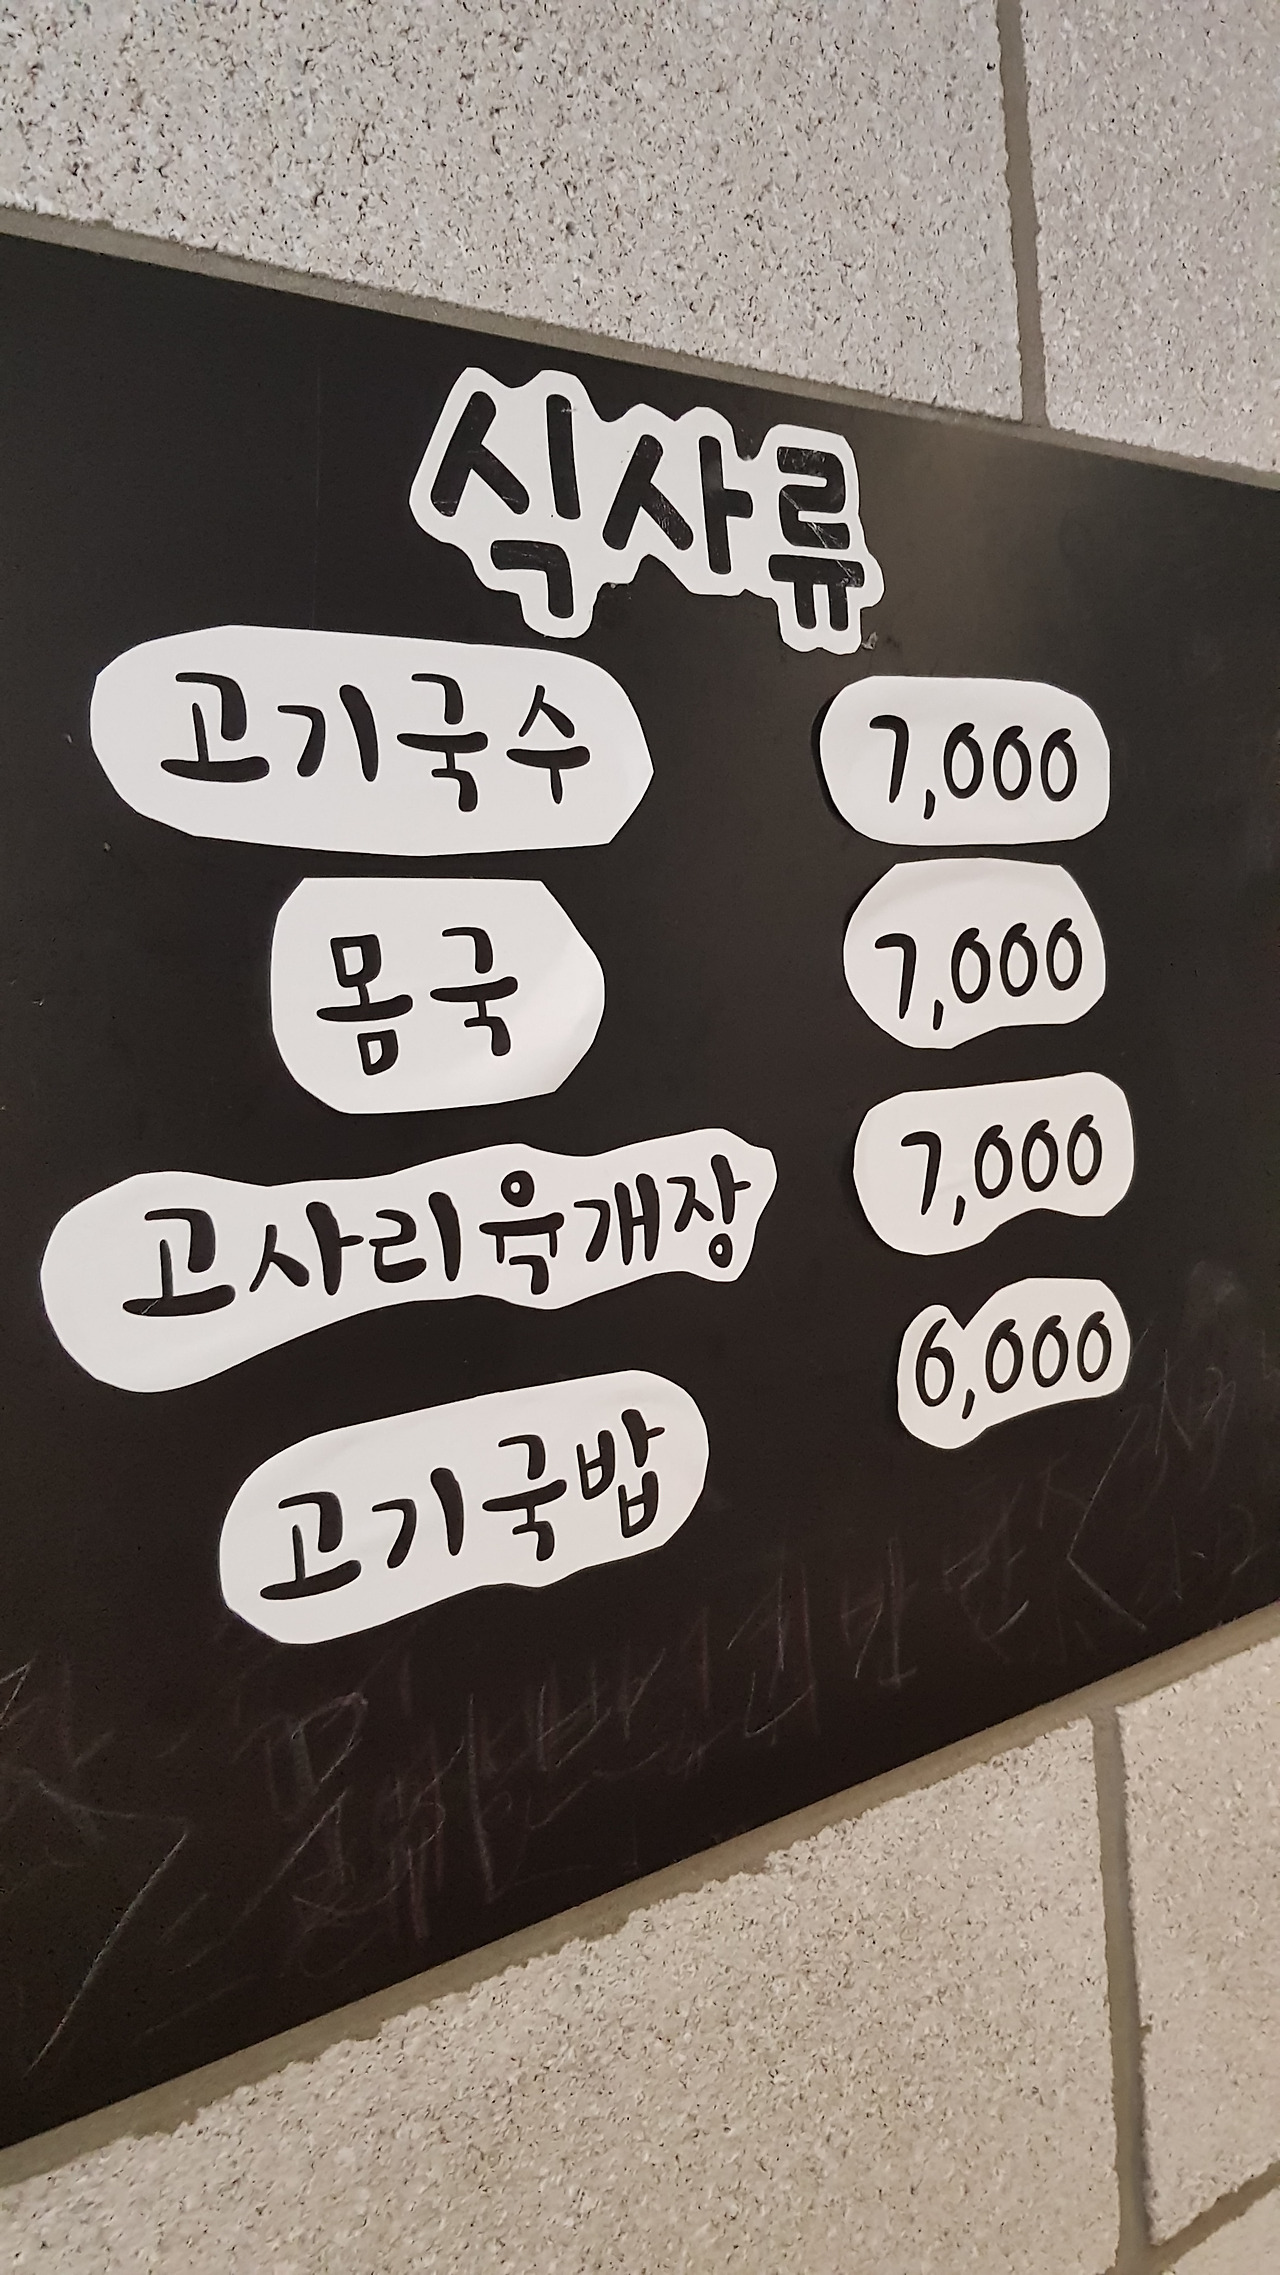 식사류
고기국수 7,000
몸국 7,000
고사리육개장 7,000
고기국밥 6,000